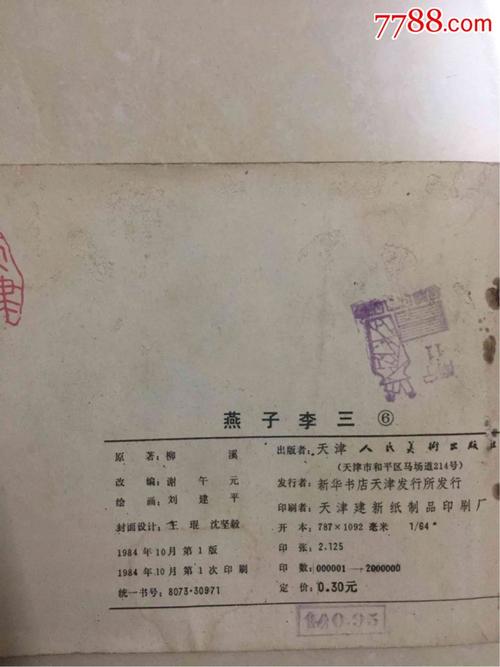 7788.com
燕子李三⑥
原著：柳溪
改编：谢午元
绘画：刘建平
封面设计：王琨 沈坚毅
1984年10月第1版
1984年10月第1次印刷
统一书号：8073·30971
出版者：天津人民美术出版社
（天津市和平区马场道214号）
发行者：新华书店天津发行所发行
印刷者：天津建新纸制品印刷厂
开本：787×1092毫米 1/64
印张：2.125
印数：000001—2000000
定价：0.30元